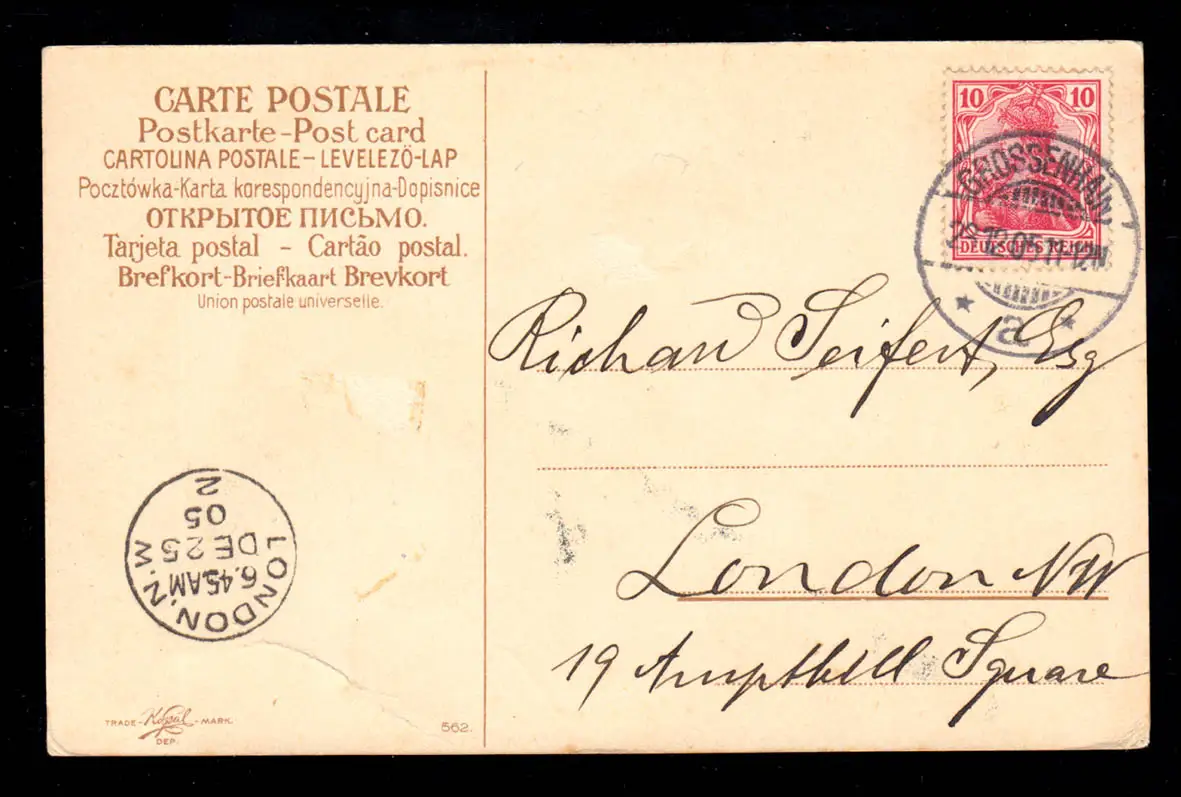 CARTE POSTALE
Postkarte-Post card
CARTOLINA POSTALE-LEVELEZÖ-LAP
Pocztówka-Karta korespondencyjna-Dopisnice
ОТКРЫТОЕ ПИСЬМО.
Tarjeta postal - Cartão postal.
Brefkort-Briefkaart Brevkort
Union postale universelle.
10 10
DEUTSCHES REICH
GROSSENHAIN
12.05 11-12N
a
Richard Seifert, Esq
London NW
19 Ampthill Square
LONDON. N.W.
6.45AM
DE 25
05
2
TRADE - Kopal - MARK.
DEP.
562.